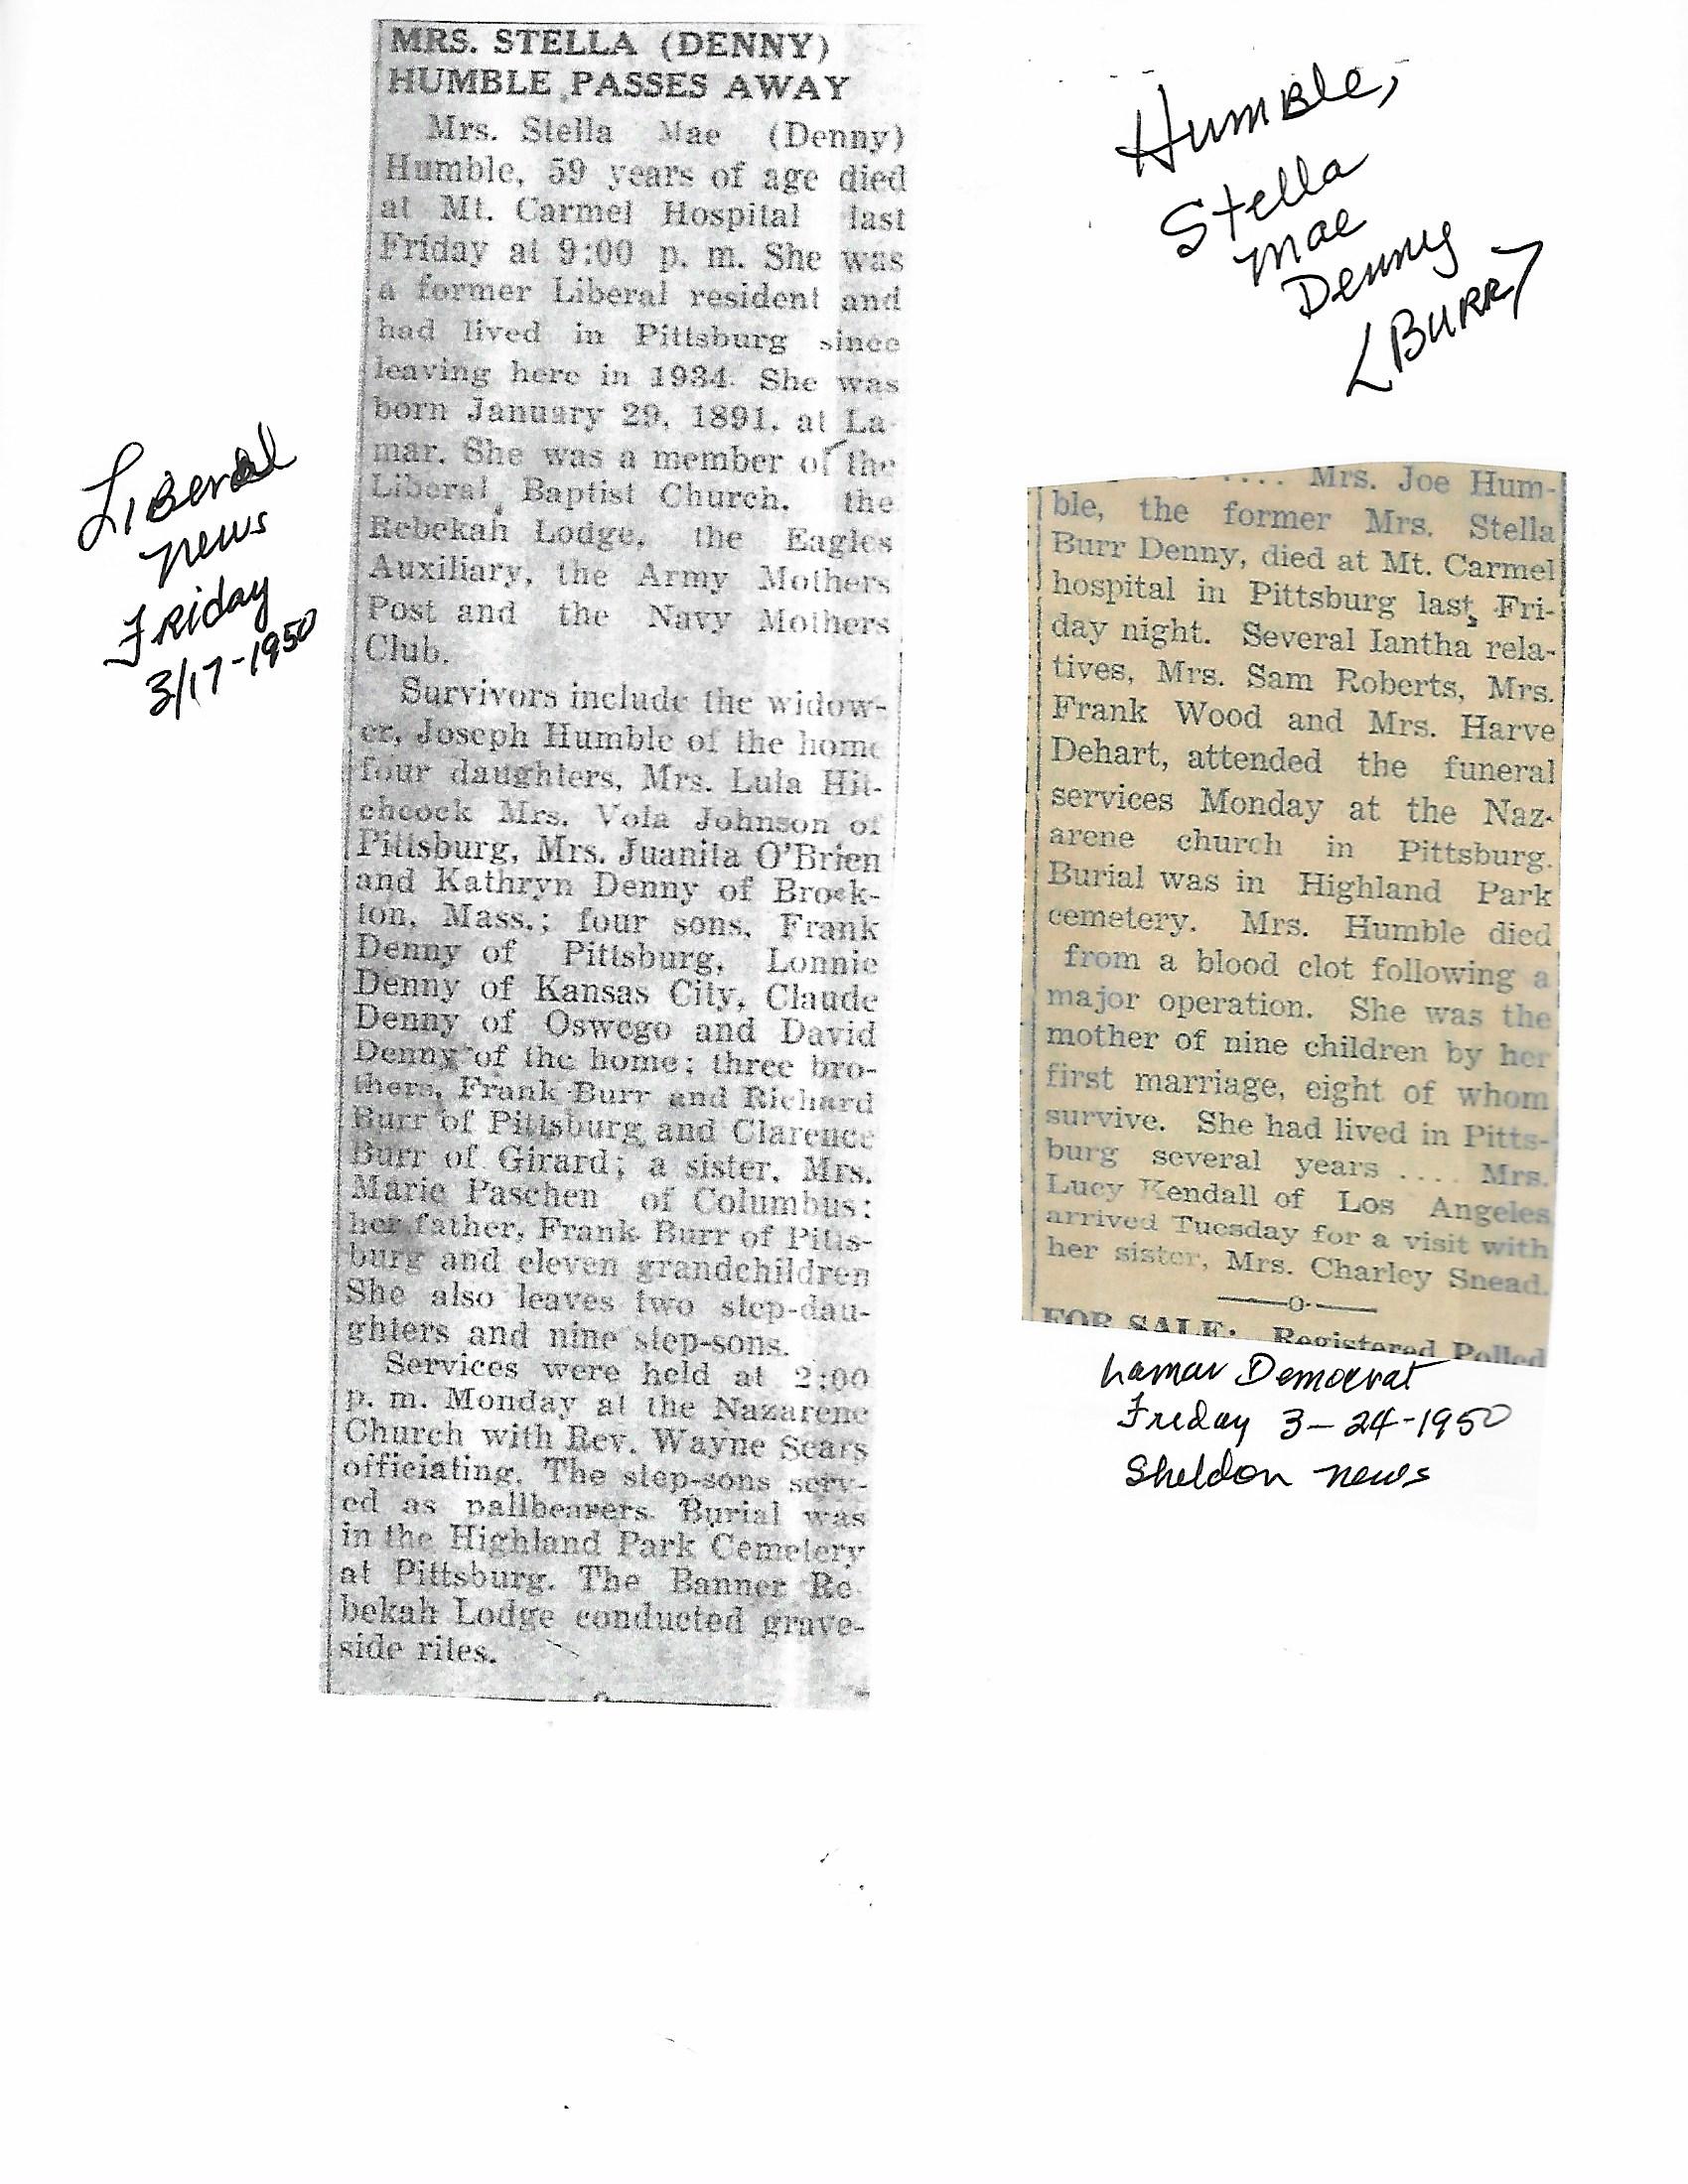 MRS. STELLA (DENNY)
HUMBLE PASSES AWAY
Mrs. Stella Mae (Denny)
Humble, 59 years of age died
at Mt. Carmel Hospital last
Friday at 9:00 p. m. She was
a former Liberal resident and
had lived in Pittsburg since
leaving here in 1934. She was
born January 29, 1891, at La-
mar. She was a member of the
Liberal Baptist Church, the
Rebekah Lodge, the Eagles
Auxiliary, the Army Mothers
Post and the Navy Mothers
Club.
Survivors include the widow-
er, Joseph Humble of the home
four daughters, Mrs. Lula Hit-
chcock Mrs. Vola Johnson of
Pittsburg, Mrs. Juanita O'Brien
and Kathryn Denny of Brock-
ton, Mass.; four sons, Frank
Denny of Pittsburg, Lonnie
Denny of Kansas City, Claude
Denny of Oswego and David
Denny of the home; three bro-
thers, Frank Burr and Richard
Burr of Pittsburg and Clarence
Burr of Girard; a sister, Mrs.
Marie Paschen of Columbus;
her father, Frank Burr of Pitts-
burg and eleven grandchildren
She also leaves two step-dau-
ghters and nine step-sons.
Services were held at 2:00
p. m. Monday at the Nazarene
Church with Rev. Wayne Sears
officiating. The step-sons serv-
ed as pallbearers. Burial was
in the Highland Park Cemetery
at Pittsburg. The Banner Re-
bekah Lodge conducted grave-
side rites.
Liberal
News
Friday
3/17-1950
Humble,
Stella
Mae
Denny
<BURR>
.... Mrs. Joe Hum-
ble, the former Mrs. Stella
Burr Denny, died at Mt. Carmel
hospital in Pittsburg last Fri-
day night. Several Iantha rela-
tives, Mrs. Sam Roberts, Mrs.
Frank Wood and Mrs. Harve
Dehart, attended the funeral
services Monday at the Naz-
arene church in Pittsburg.
Burial was in Highland Park
cemetery. Mrs. Humble died
from a blood clot following a
major operation. She was the
mother of nine children by her
first marriage, eight of whom
survive. She had lived in Pitts-
burg several years .... Mrs.
Lucy Kendall of Los Angeles
arrived Tuesday for a visit with
her sister, Mrs. Charley Snead.
FOR SALE: Registered Polled
Lamar Democrat
Friday 3-24-1950
Sheldon News